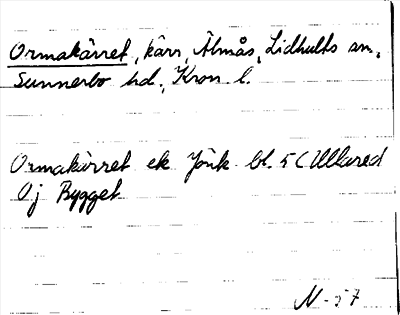 Ormakärret, kärr, Älmås, Lidhults sn,
Sunnerbo hd., Kron. l.
Ormakärret ek Jönk. bl. 5 C Ullared
0j Bygget
N - 57